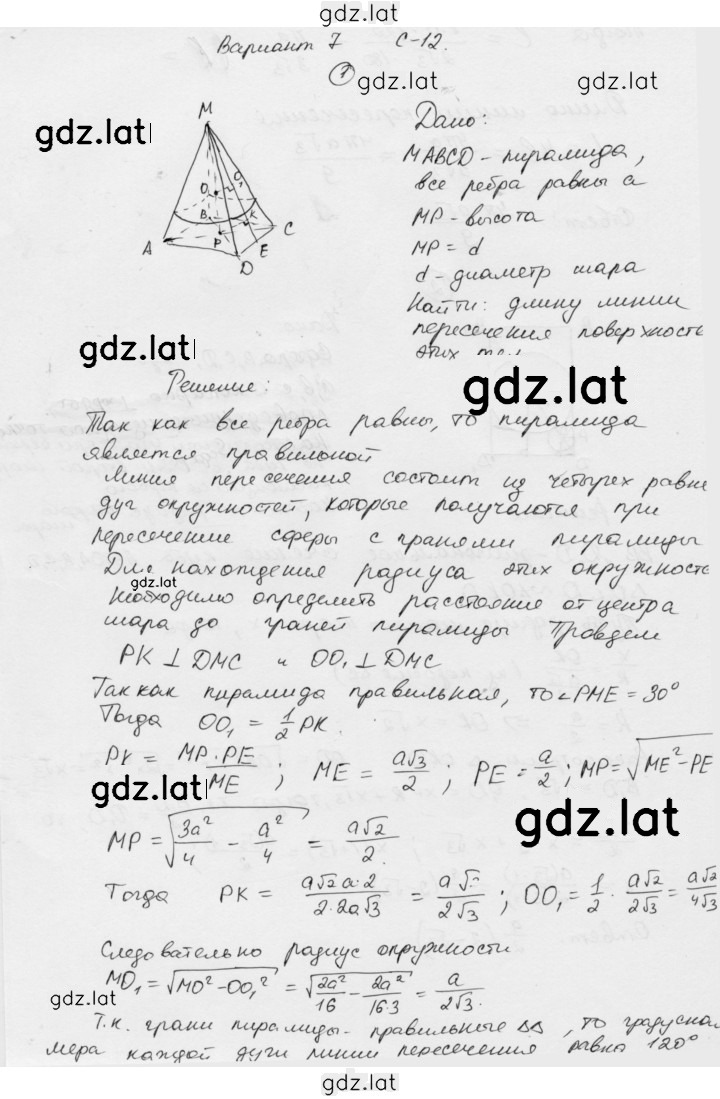 gdz.lat
Вариант 7 С-12.
① gdz.lat
gdz.lat
M
O O₁
B K
A P C
D E
Дано:
MABCD - пирамида,
все ребра равны a
MP - высота
MP = d
d - диаметр шара
Найти: длину линии
пересечения поверхность
этих тел
gdz.lat
gdz.lat
Решение:
Так как все ребра равны, то пирамида
является правильной
Линия пересечения состоит из четырех равне
дуг окружностей, которые получаются при
пересечение сферы с гранями пирамиды
Для нахождения радиуса этих окружносте
gdz.lat
необходимо определить расстояние от центра
шара до граней пирамиды Проведем
PK ⊥ DMC и OO₁ ⊥ DMC
Так как пирамида правильная, то ∠PME = 30°
Тогда OO₁ = 1/2 PK.
PK = MP·PE/ME ; ME = a√3/2 ; PE = a/2 ; MP = √ME²-PE
gdz.lat
gdz.lat
MP = √3a²/4 - a²/4 = a√2/2.
Тогда PK = a√2a·2/2·2a√3 = a√2/2√3 ; OO₁ = 1/2 · a√2/2√3 = a√2/4√3
Следовательно радиус окружности
MO₁ = √MO²-OO₁² = √2a²/16 - 2a²/16·3 = a/2√3.
gdz.lat
Т.к. грани пирамиды - правильные ΔΔ, то градусная
мера каждой дуги линии пересечения равна 120°
gdz.lat